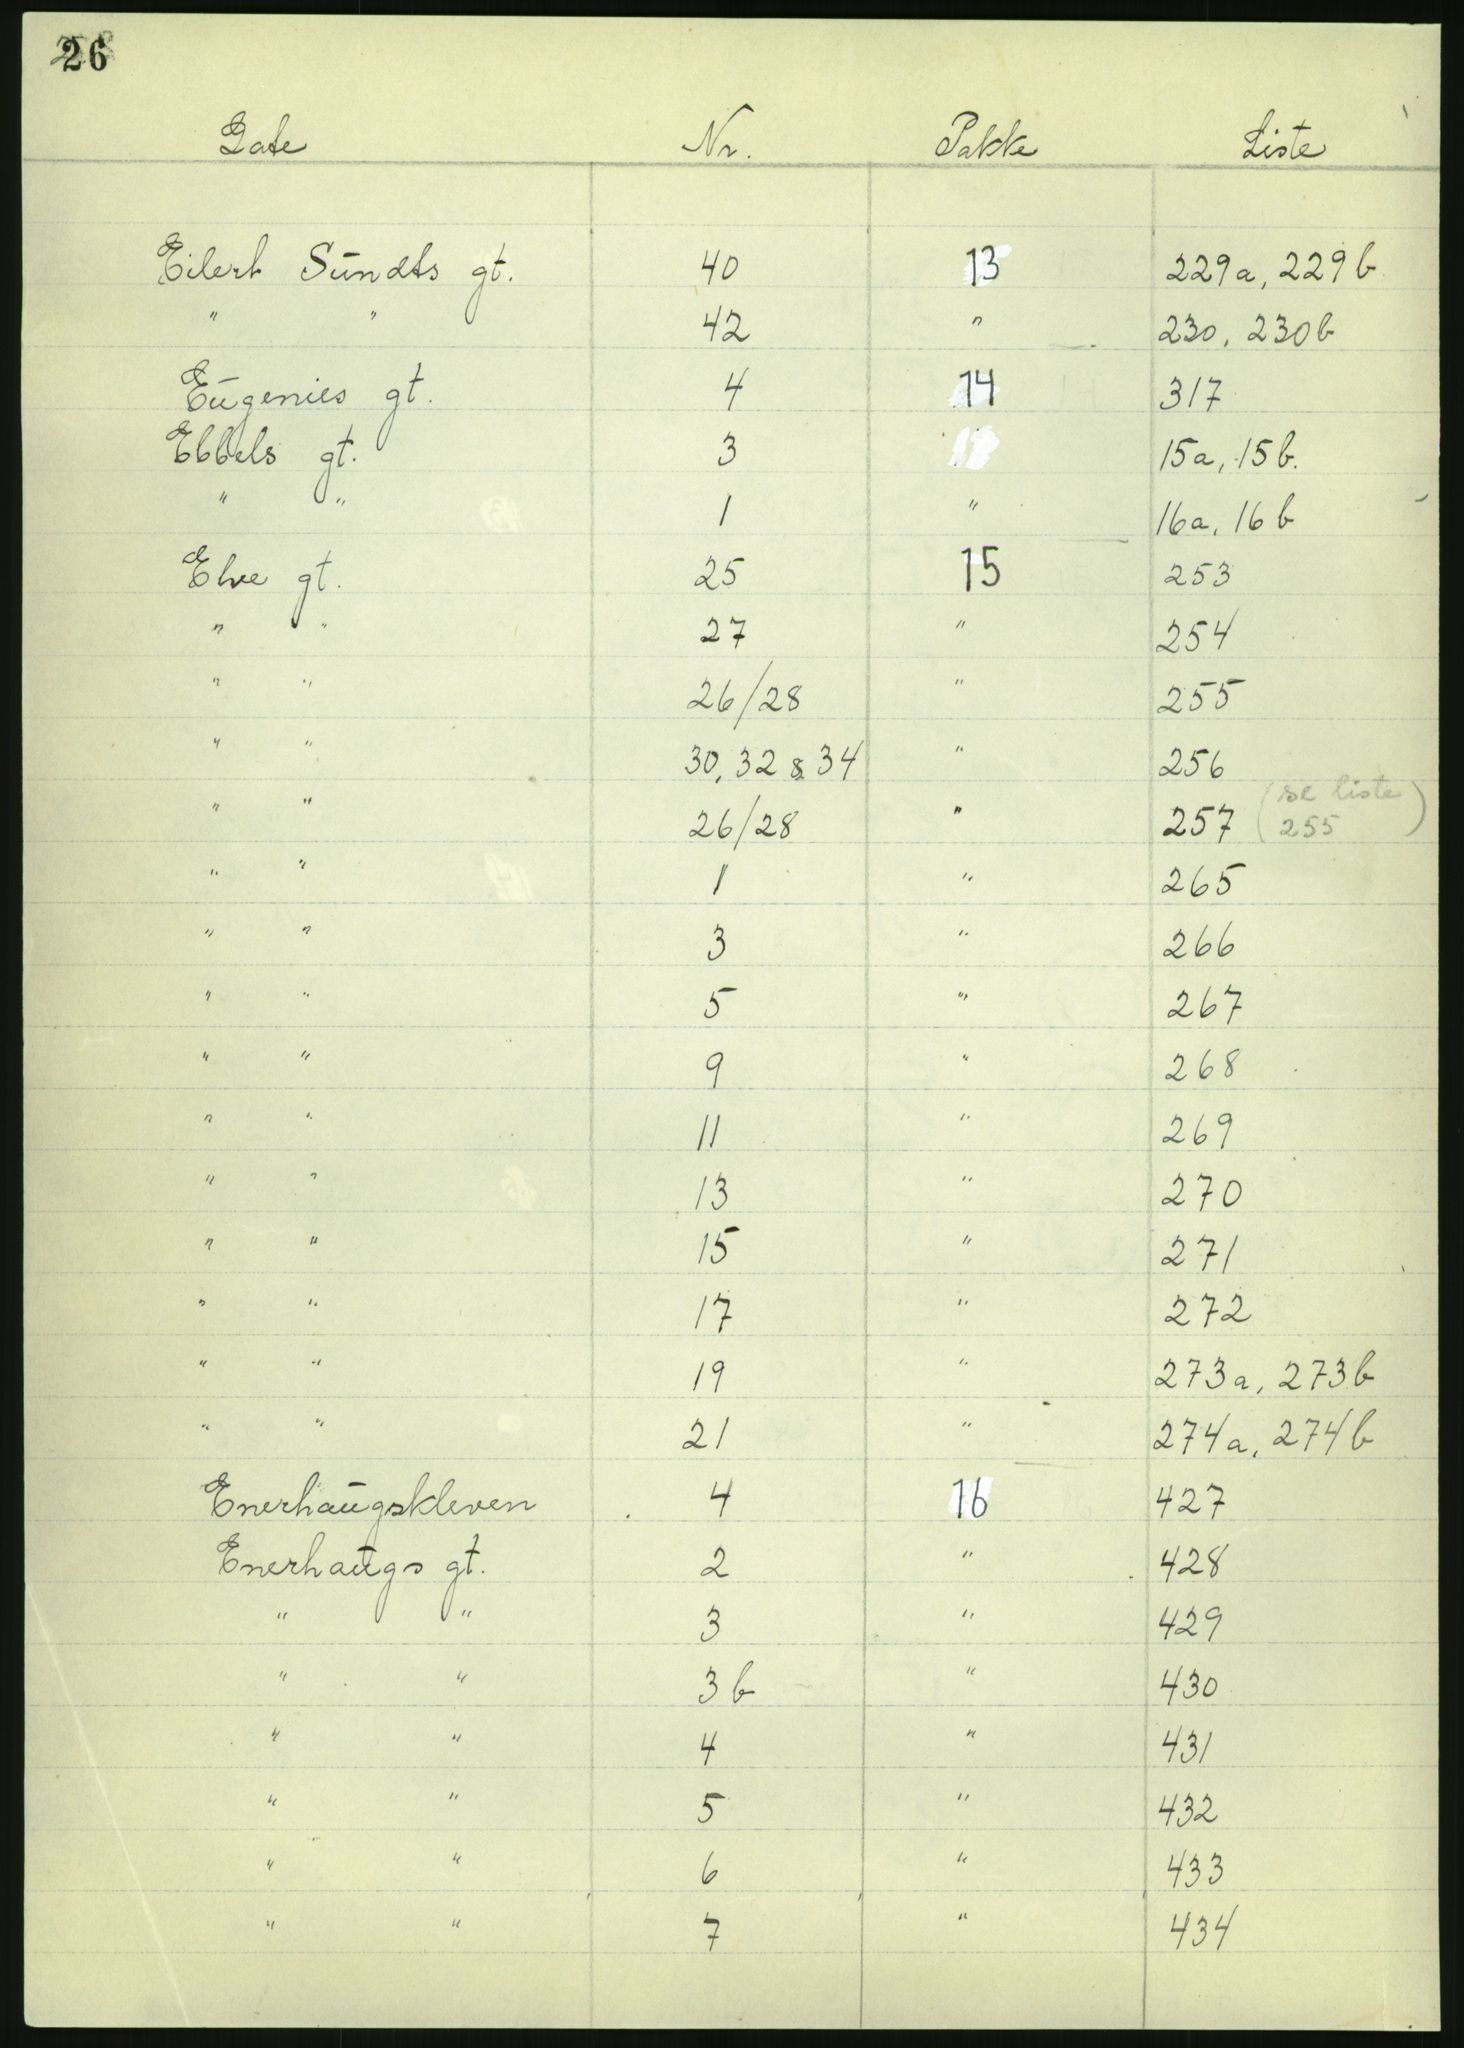 26
Gate Nr. Pakke Liste
Eilert Sundts gt. 40 13 229a, 229b
" " 42 " 230, 230b
Eugenies gt. 4 14 317
Ebbels gt. 3 15a, 15b.
" " 1 " 16a, 16b
Elve gt. 25 15 253
" " 27 " 254
" " 26/28 " 255
" " 30, 32 & 34 " 256
" " 26/28 " 257 (se liste 255)
" " 1 " 265
" " 3 " 266
" " 5 " 267
" " 9 " 268
" " 11 " 269
" " 13 " 270
" " 15 " 271
" " 17 " 272
" " 19 " 273a, 273b
" " 21 " 274a, 274b
Enerhaugskleven 4 16 427
Enerhaugs gt. 2 " 428
" " 3 " 429
" " 3b " 430
" " 4 " 431
" " 5 " 432
" " 6 " 433
" " 7 " 434